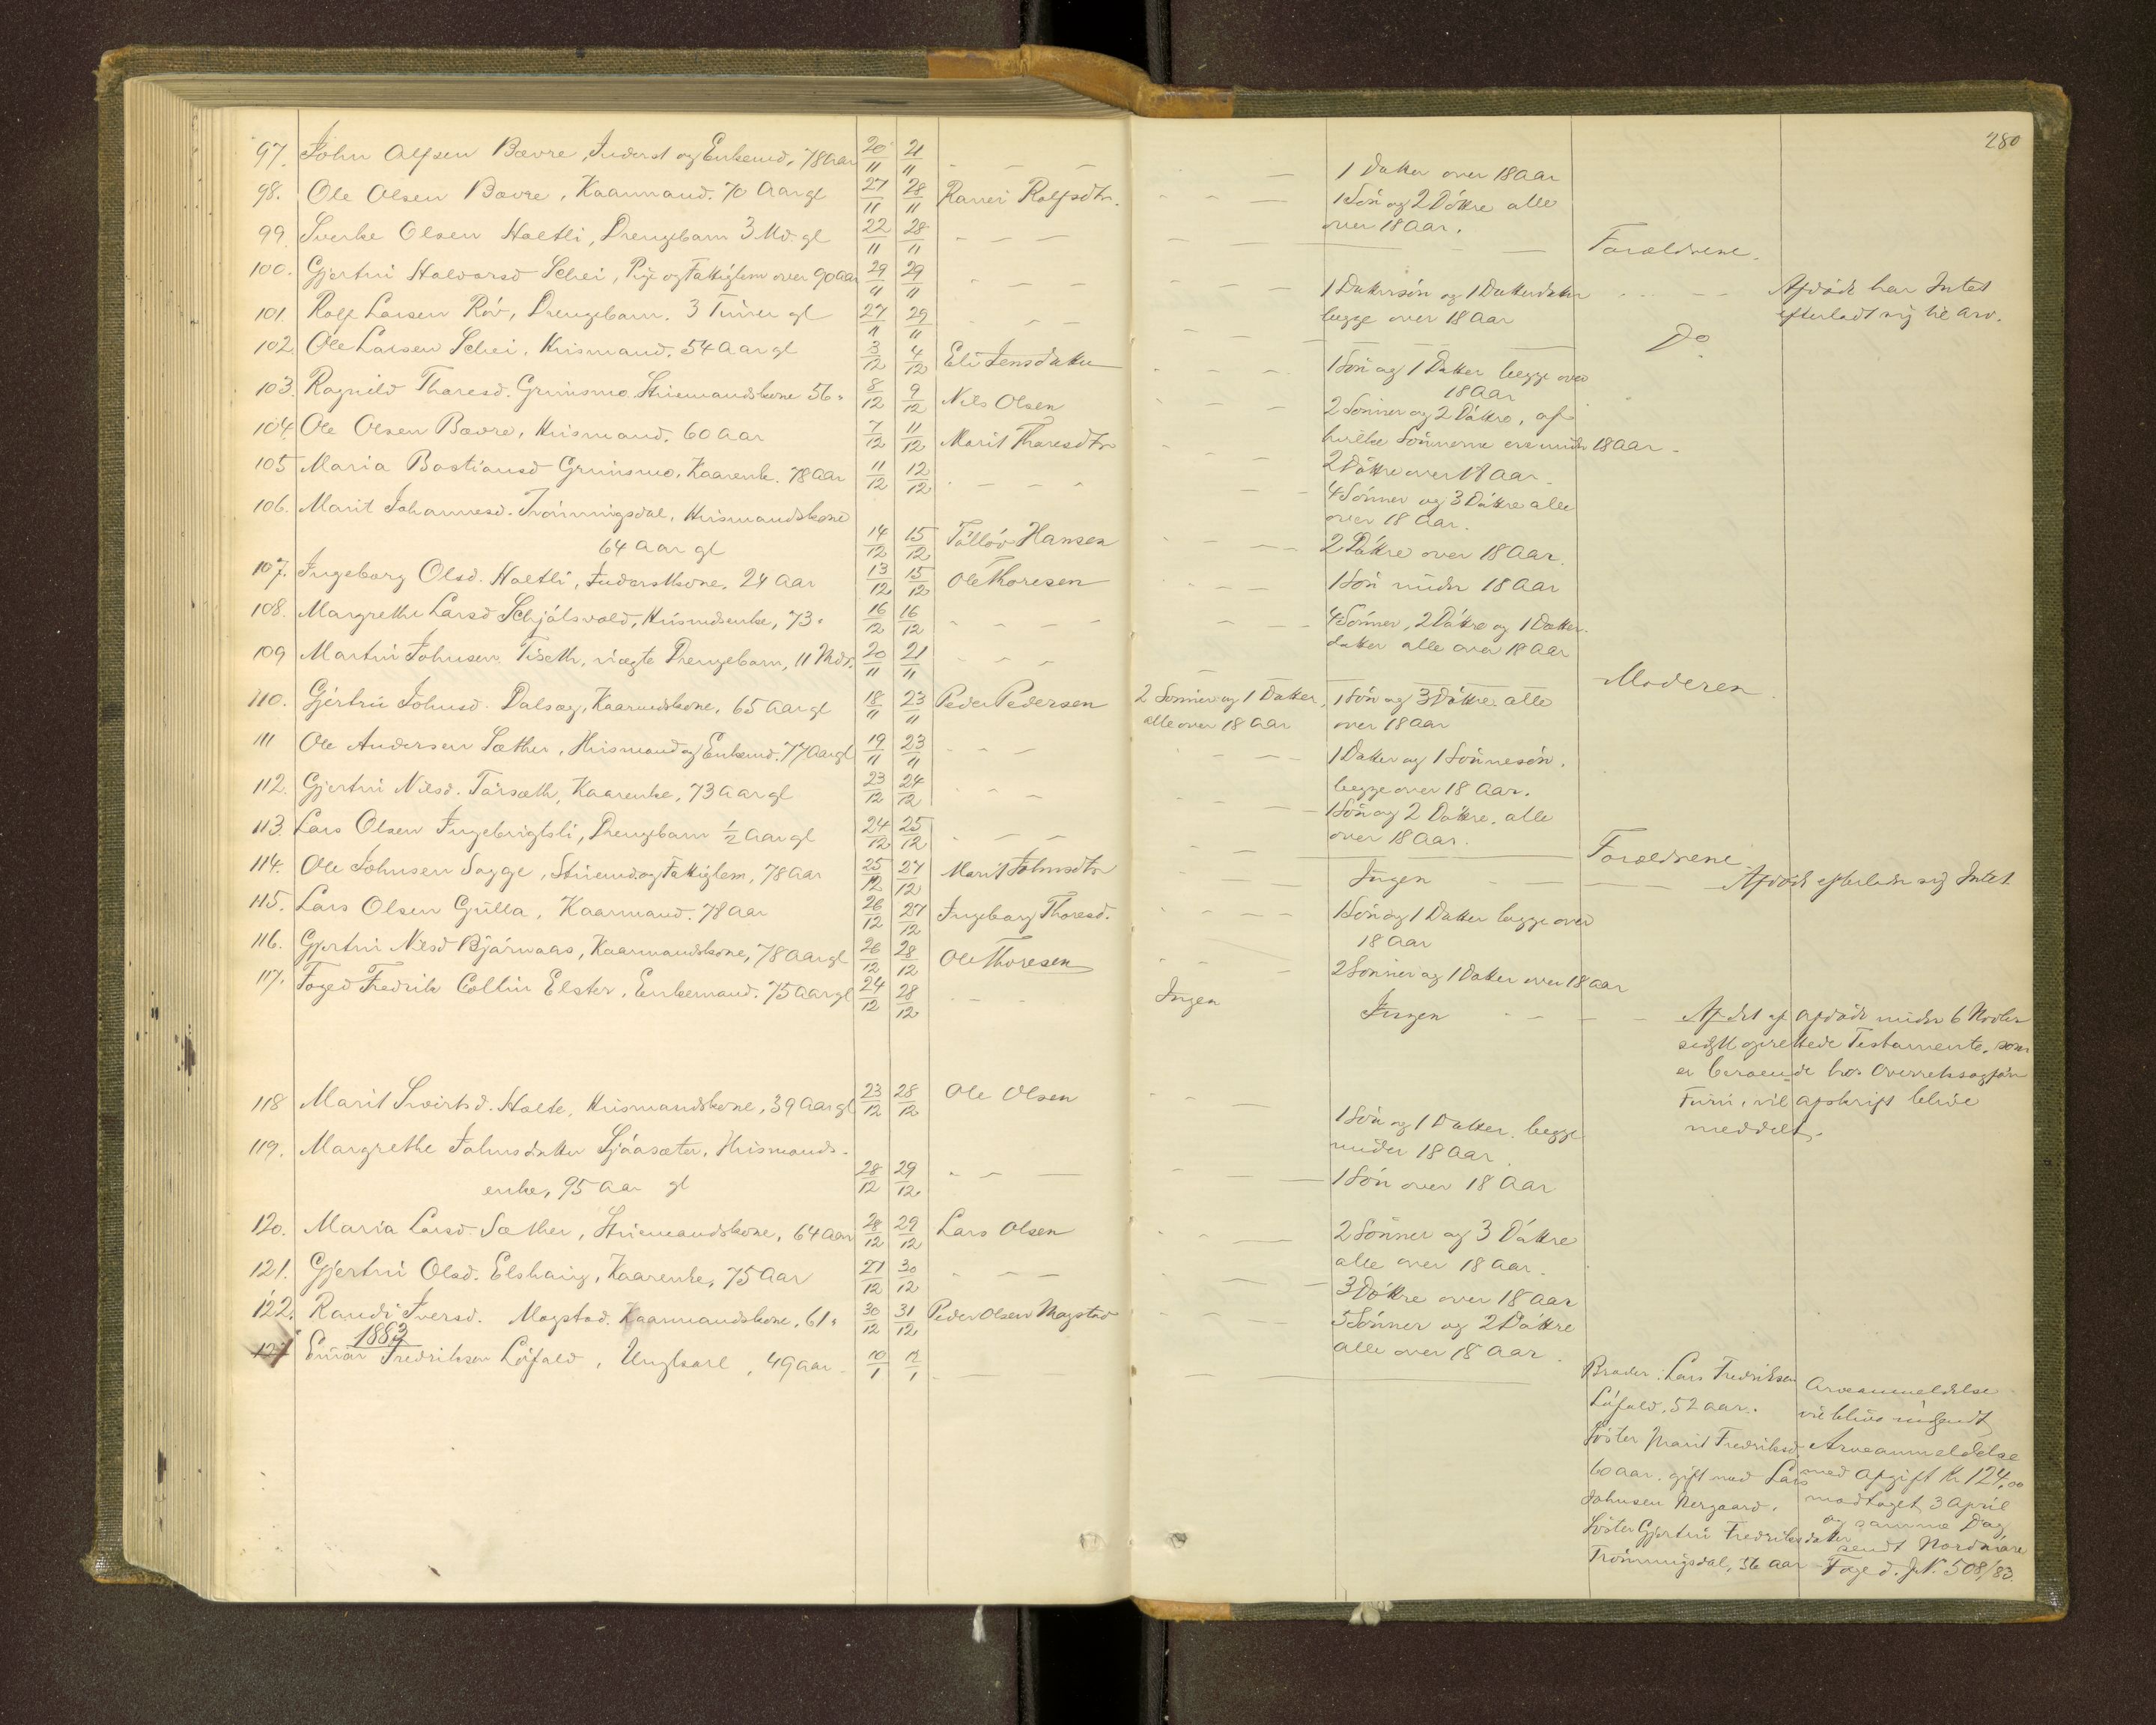 280
97. John Olsen Bævre, Inderst og Enkemd, 78 Aar 20/11 21/11 - - - - - - 1 Datter over 18 Aar
98. Ole Olsen Bævre, Kaarmand. 70 Aar gl 27/11 28/11 Ranei Rolfsdtr. - - - 1 Søn og 2 Døttre alle
over 18 Aar.
99. Sverke Olsen Holtli, Drengebarn 3 Md. gl 22/11 28/11 - - - - - - Forældrene.
100. Gjertru Halvorsd Schei, Pige og Fattiglem over 90 Aar 29/11 29/11 - - - - - - 1 Dattersøn og 1 Datterdatter - - - Afdøde har Intet
begge over 18 Aar efterladt sig til Arv.
101. Rolf Larsen Röv, Drengebarn. 3 Timer gl 27/11 29/11 - - - - - - Do
102. Ole Larsen Schei, Husmand. 54 Aar gl 3/12 4/12 Eli Jensdatter - - - 1 Søn og 1 Datter begge over
18 Aar
103. Ragnild Thoresd. Grunsmo. Husmandskone 56 " 8/12 9/12 Nils Olsen - - - 2 Sønner og 2 Døttre, af
hvilke Sønnerne ere under 18 Aar
104. Ole Olsen Bævre, Husmand. 60 Aar 7/12 11/12 Marit Thoresdtr - - - 2 Døttre over 18 Aar
105 Maria Bastiansd Grunsmo. Kaarenke. 78 Aar 11/12 12/12 - - - - - - 4 Sønner og 3 Døttre alle
over 18 Aar.
106. Marit Johannesd. Trönningsdal, Husmandskone
64 Aar gl 14/12 15/12 Tolløv Hansen - - - 2 Døttre over 18 Aar.
107. Ingeborg Olsd. Holtli, Inderstkone, 24 Aar 13/12 15/12 Ole Thoresen - - - 1 Søn under 18 Aar
108. Margrethe Larsd Schjølsvold, Husmdsenke, 73 " 16/12 16/12 - - - - - - 4 Sønner, 2 Døttre og 1 Datter-
datter alle over 18 Aar
109 Martin Johnsen Tiseth, uægte Drengebarn, 11 Mdr. 20/11 21/11 - - - - - - Moderen
110. Gjertru Johnsd. Dalsøg, Kaarmdskone, 65 Aar gl 18/11 23/11 Peder Pedersen 2 Sønner og 1 Datter, 1 Søn og 3 Døttre alle
alle over 18 Aar over 18 Aar
111 Ole Andersen Sæther, Husmand og Enkemd. 77 Aar gl 19/11 23/11 - - - - - - 1 Datter og 1 Sønnesøn.
begge over 18 Aar.
112. Gjertru Nilsd. Torsæth, Kaarenke, 73 Aar gl 23/12 24/12 - - - - - - 1 Søn og 2 Døttre, alle
over 18 Aar.
113. Lars Olsen Ingebrigtsli, Drengebarn 1/2 Aar gl 24/12 25/12 - - - - - - Forældrene
114. Ole Johnsen Sogge, Husmd. og Fattiglem, 78 Aar 25/12 27/12 Marit Johnsdtr - - - Ingen - - - Afdøde efterlader sig Intet
115. Lars Olsen Gulla, Kaarmand. 78 Aar 26/12 27/12 Ingeborg Thoresd. - - - 1 Søn og 1 Datter begge over
18 Aar
116. Gjertru Nilsd Bjørnaas, Kaarmandskone, 78 Aar gl 26/12 28/12 Ole Thoresen - - - 2 Sønner og 1 Datter over 18 Aar
117. Foged Fredrik Collin Elster, Enkemand. 75 Aar gl 24/12 28/12 - - - Ingen Ingen - - - Af det af Afdøde under 6 Novbr
oprettede Testamente, som
er beroende hos Overretssagfør
vil Afskrift blive
meddelt.
118 Marit Sivertsd. Holte, Husmandskone, 39 Aar gl 23/12 28/12 Ole Olsen - - - 1 Søn og 1 Datter. begge
under 18 Aar
119. Margrethe Johnsdatter Sjøasæter, Husmands-
enke, 95 Aar gl 28/12 29/12 - - - - - - 1 Søn over 18 Aar
120. Maria Larsd. Sæther, Husmandskone, 64 Aar 28/12 29/12 Lars Olsen - - - 2 Sønner og 3 Døttre
alle over 18 Aar.
121. Gjertru Olsd. Elshaug, Kaarenke, 75 Aar 27/12 30/12 - - - - - - 3 Døttre over 18 Aar
122. Randi Iversd. Mogstad. Kaarmandskone, 61 " 30/12 31/12 Peder Olsen Mogstad - - - 5 Sønner og 2 Døttre
alle over 18 Aar.
1883
1 Einar Fredriksen Löfald, Ungkarl, 49 Aar 10/1 12/1 - - - - - - Broder: Lars Fredriksen Arveanmeldelse
Löfald, 52 Aar. vil blive indsendt
Søster Marit Fredriksd. Arveanmeldelse
60 Aar, gift med Lars med Afgift Kr 124,00
Johnsen Nergaard. modtaget 3 April
Søster Gjertru Fredriksdatter og samme Dag
sendt Nordmøre
Trönningsdal, 56 Aar Foged. J.N. 508/83.